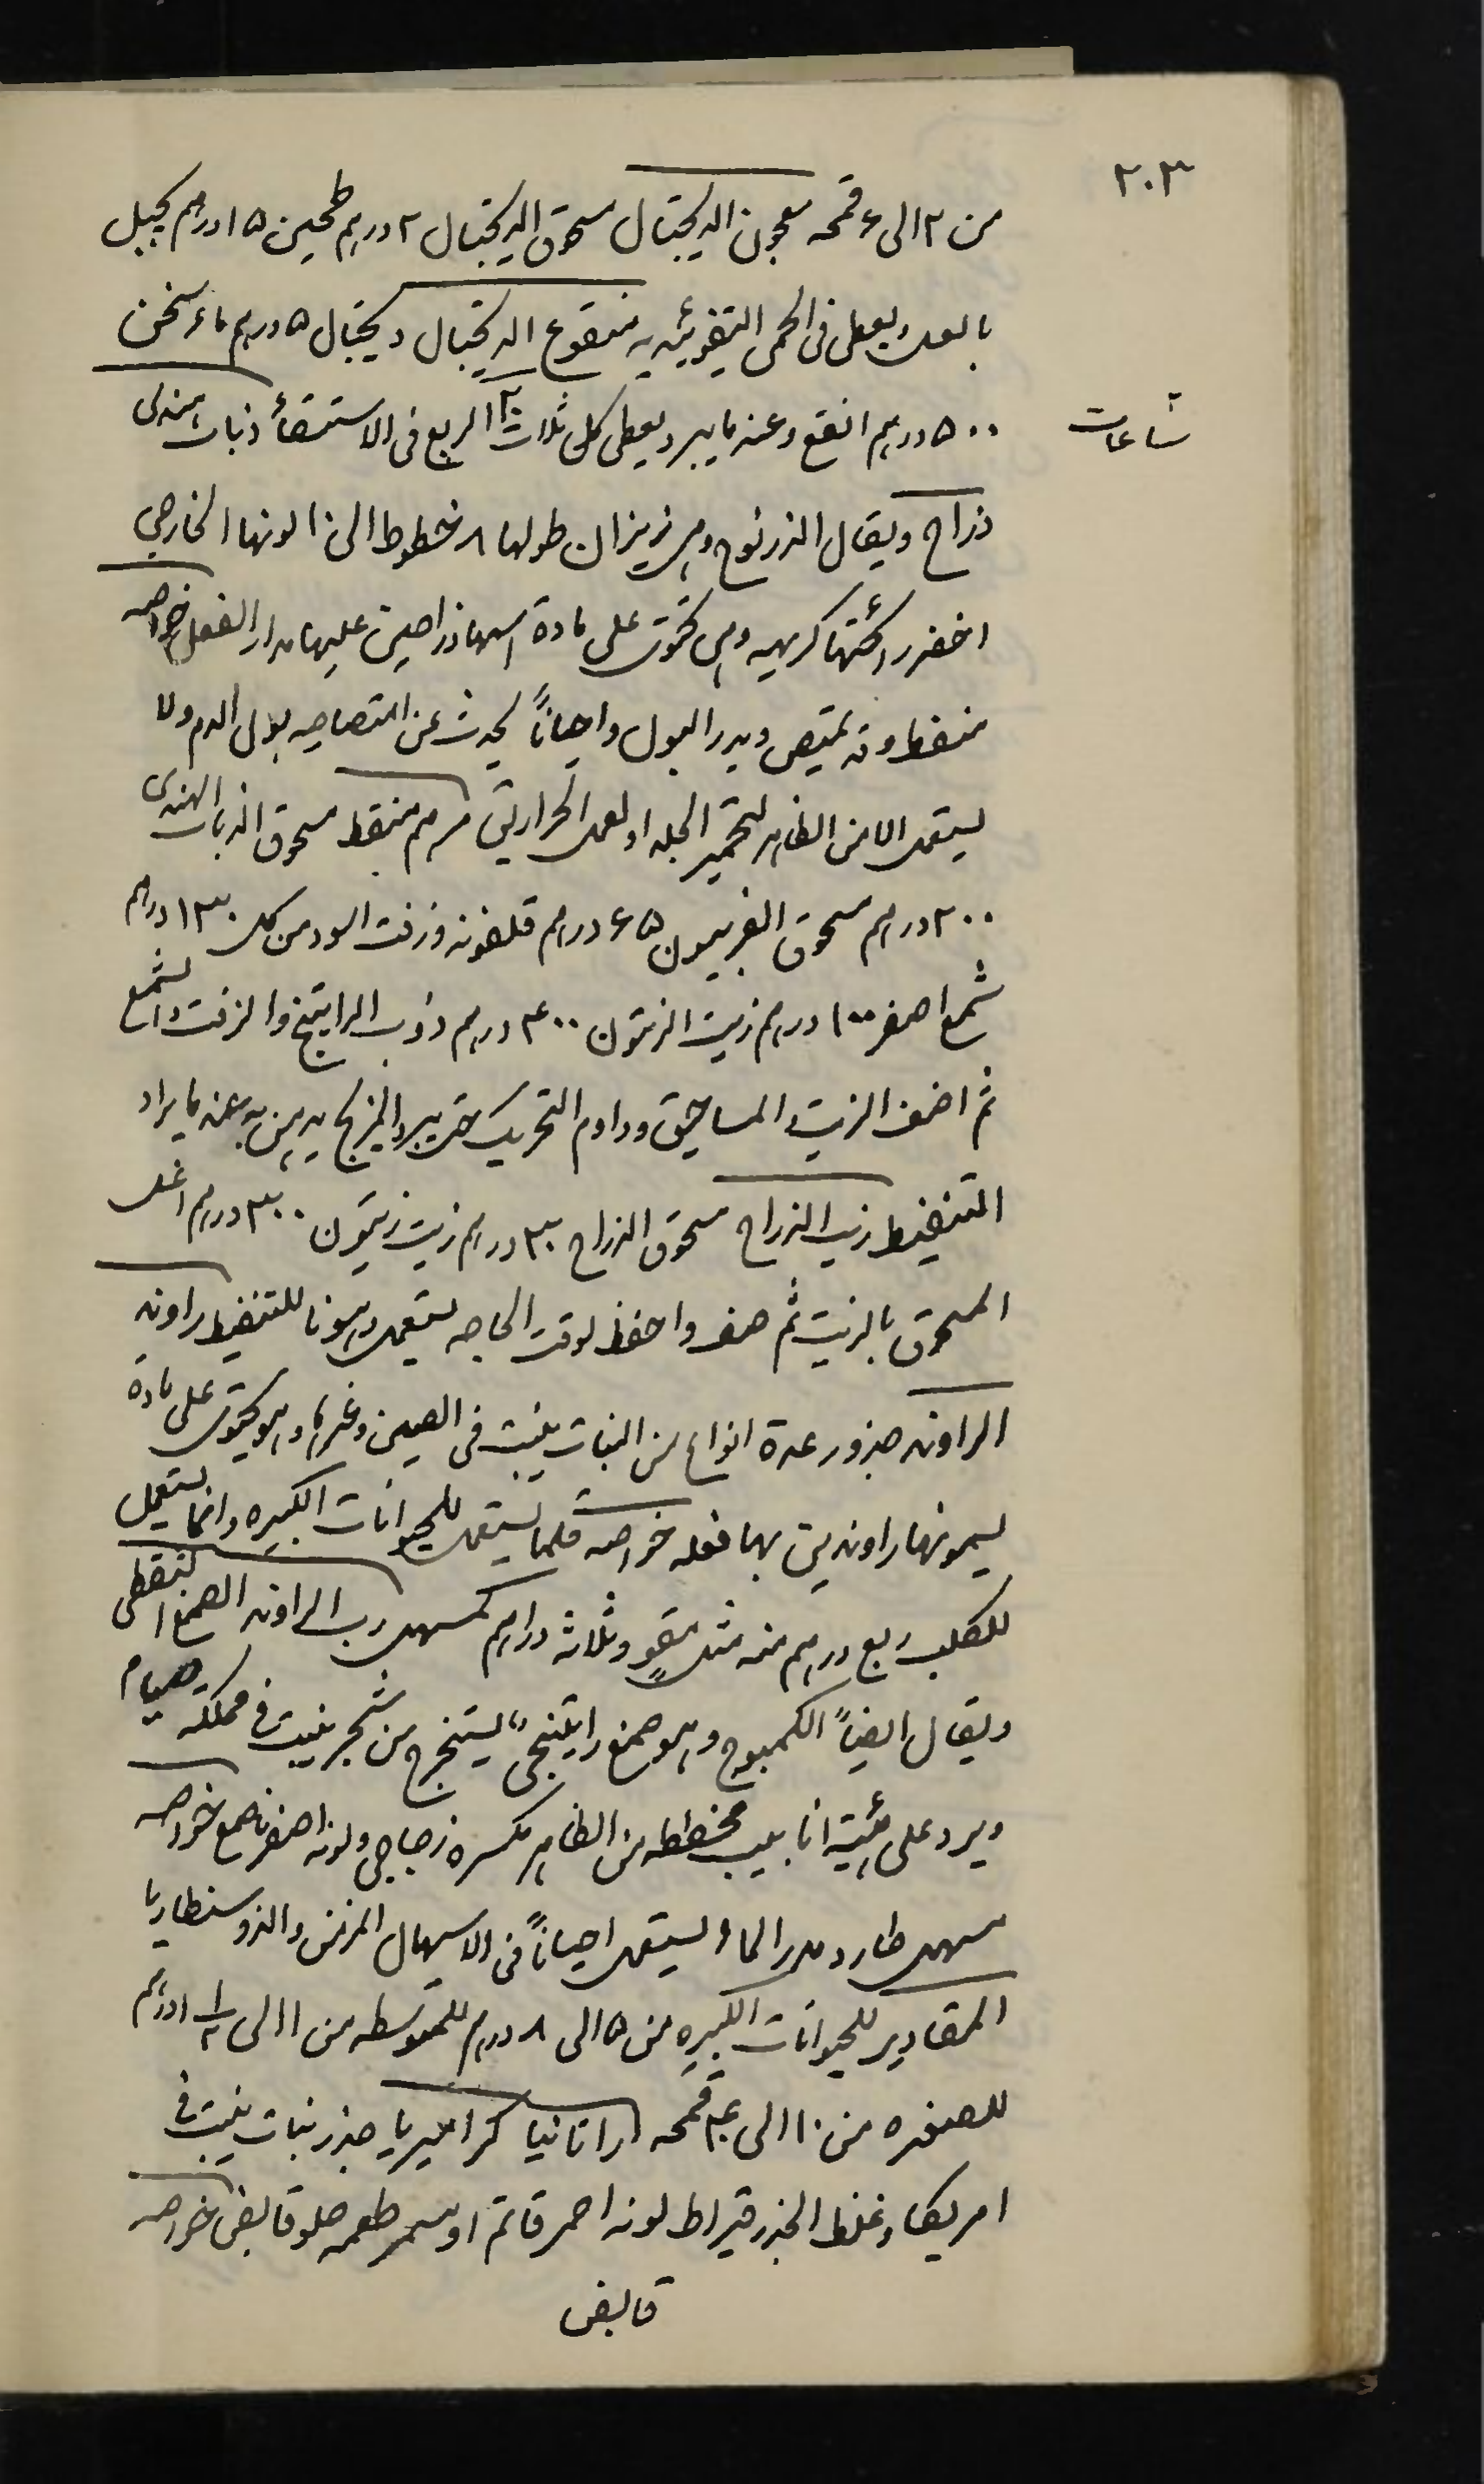 ٢٠٣
من ٢ الى ٤ قمحه معجون الديجتال مسحوق الديجتال ٢ درهم طحين ١٥ درهم يجبل
بالعسل ويعطى فى الحمى التيفوئيديه منقوع الديجتال ديجتال ٥ درهم ماء سخن
٥٠٠ درهم انقع وعندما يبرد يعطى كل ثلاث ٢ الربع فى الاستسقاء ذبان هندى
٢ ساعات
ذراح ويقال الذرنوح وهى زيزان طولها ٨ خطوط الى ١٠ لونها الخارجى
اخضر رائحتها كريهه وهى تحتوى على مادة اسمها ذراحين عليها مدار الفعل خواصه
منفط وقد يمتص ويدر البول واحياناً يحدث عن امتصاصه بول الدم ولا
يستعمل الا من الظاهر لتحمير الجلد او لعمل الحراريق مرهم منفط مسحوق الذبان الهندى
٢٠٠ درهم مسحوق الفربيون ٦٥ درهم قلفونه وزفت اسود من كل ١٣٠ درهم
شمع اصفر ١٠٠ درهم زيت الزيتون ٤٠٠ درهم ذوب الراتينج والزفت والشمع
ثم اضف الزيت والمساحيق وداوم التحريك حتى يبرد المزيج يدهن به عندما يراد
التنفيط زيت الذراح مسحوق الذراح ٣٠ درهم زيت زيتون ٣٠٠ درهم اغل
المسحوق بالزيت ثم صف واحفظ لوقت الحاجه يستعمل دهونا للتنفيط راوند
الراوند جذور عدة انواع من النبات ينبت فى الصين وغيرها وهو يحتوى على مادة
يسمونها راوندين بها فعله خواصه قلما يستعمل للحيوانات الكبيره وانما يستعمل
للكلب ربع درهم منه مثل مقوٍ وثلاثة دراهم كمسهل رب الراوند الصمغ النقطى
ويقال ايضاً الكمبوج وهو صمغ راتينجى يستخرج من شجر ينبت فى مملكة صيام
ويرد على هيئة انابيب مخططه من الظاهر مكسره زجاجى ولونه اصفر ناصع خواصه
مسهل طارد مدر الماء يستعمل احياناً فى الاسهال المزمن والدوسنطاريا
المقادير للحيوانات الكبيره من ٥ الى ٨ درهم للمتوسطه من ١ الى ١ ١/٢ درهم
للصغيره من ١٠ الى قمحه راتانيا كراميريا جذر نبات ينبت فى
امريكا وغلظ الجذر قيراط لونه احمر قاتم او اسمر طعمه حلو قابض خواصه
قابض